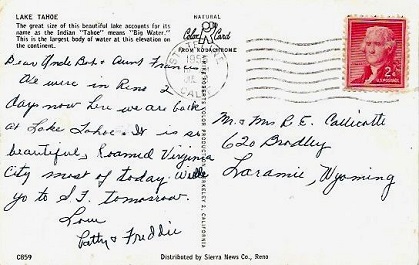 LAKE TAHOE
The great size of this beautiful lake accounts for its
name as the Indian "Tahoe" means "Big Water."
This is the largest body of water at this elevation on
the continent.
NATURAL
Color Card
FROM KODACHROME
Dear Uncle Bob & Aunt Frances
We were in Reno 2
days now here we are back
at Lake Tahoe. It is so
beautiful. Roamed Virginia
City most of today. We'll
go to S.F. tomorrow.
Love
Patty & Freddie
Mr. & Mrs R. E. Callicotte
620 Bradley
Laramie, Wyoming
2¢
C859
Distributed by Sierra News Co., Reno